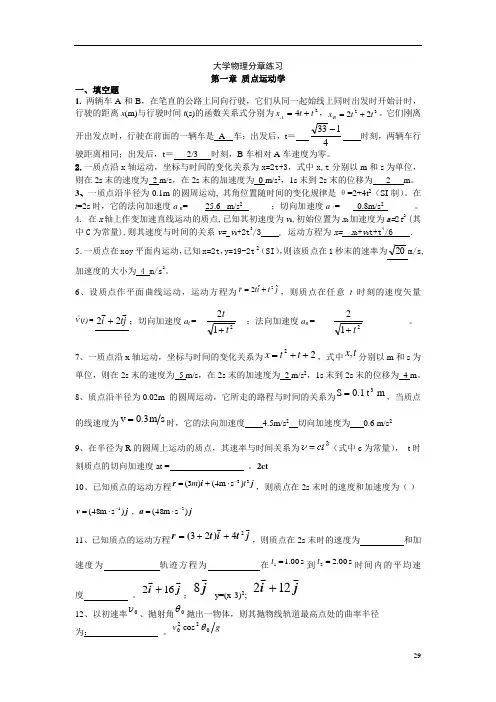 大学物理分章练习
第一章 质点运动学
一、填空题
1. 两辆车A和B，在笔直的公路上同向行驶，它们从同一起始线上同时出发时开始计时，
行驶的距离x(m)与行驶时间t(s)的函数关系式分别为 x_A = 4t + t²，x_B = 2t² + 2t³。它们刚离
开出发点时，行驶在前面的一辆车是 A 车；出发后，t＝ (√33 − 1)/4 时刻，两辆车行
驶距离相同；出发后，t＝ 2/3 时刻，B车相对A车速度为零。
2. 一质点沿x轴运动，坐标与时间的变化关系为x=2t+3，式中x,t分别以m和s为单位，
则在2s末的速度为 2 m/s，在2s末的加速度为 0 m/s²，1s末到2s末的位移为 2 m。
3、一质点沿半径为0.1m的圆周运动，其角位置随时间的变化规律是θ=2+4t²（SI制）。在
t=2s时，它的法向加速度a n= 25.6 m/s² ；切向加速度a τ= 0.8m/s² 。
4. 在x轴上作变加速直线运动的质点,已知其初速度为v₀,初始位置为x₀加速度为a=2t²（其
中C为常量），则其速度与时间的关系v= v₀+2t³/3 ，运动方程为x= x₀+v₀t+t⁴/6 .
5.一质点在xoy平面内运动,已知x=2t,y=19-2t²（SI），则该质点在1秒末的速率为√20 m/s,
加速度的大小为 4 m/s²。
6、设质点作平面曲线运动，运动方程为 r = 2ti + t²j，则质点在任意t时刻的速度矢量
v(t) = 2i + 2tj ；切向加速度a_t = 2t/√(1+t²) ；法向加速度a_n = 2/√(1+t²) 。
7、一质点沿x轴运动，坐标与时间的变化关系为 x = t² + t + 2，式中x,t分别以m和s为
单位，则在2s末的速度为 5 m/s，在2s末的加速度为 2 m/s²，1s末到2s末的位移为 4 m。
8、质点沿半径为0.02m 的圆周运动，它所走的路程与时间的关系为 S = 0.1 t³ m，当质点
的线速度为 v = 0.3m/s 时，它的法向加速度 4.5m/s² 切向加速度为 0.6 m/s²
9、在半径为R的圆周上运动的质点，其速率与时间关系为 υ = ct³（式中c为常量）， t时
刻质点的切向加速度at = 。2ct
10、已知质点的运动方程 r = (3m)i + (4m·s⁻³)t³j，则质点在2s末时的速度和加速度为（）
v = (48m·s⁻¹)j，a = (48m·s⁻²)j
11、已知质点的运动方程 r = (3 + 2t)i + 4t²j，则质点在2s末时的速度为 和加
速度为 轨迹方程为 在 t₁ = 1.00 s 到 t₂ = 2.00 s 时间内的平均速
度 。2i + 16j； 8j y=(x-3)²; 2i + 12j
12、以初速率υ₀、抛射角θ₀抛出一物体，则其抛物线轨道最高点处的曲率半径
为: 。v₀²cos²θ₀/g
29